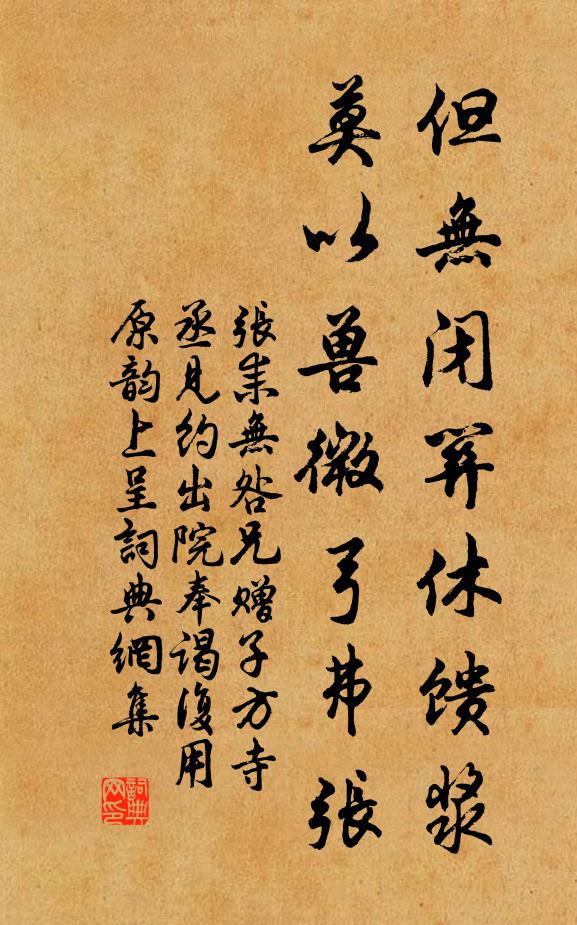 但無闭關休馈漿
莫以兽微弓弗張
張耒無咎兄赠子方寺
丞見約出院奉謁復用
原韵上呈詞典網集
詞典网印